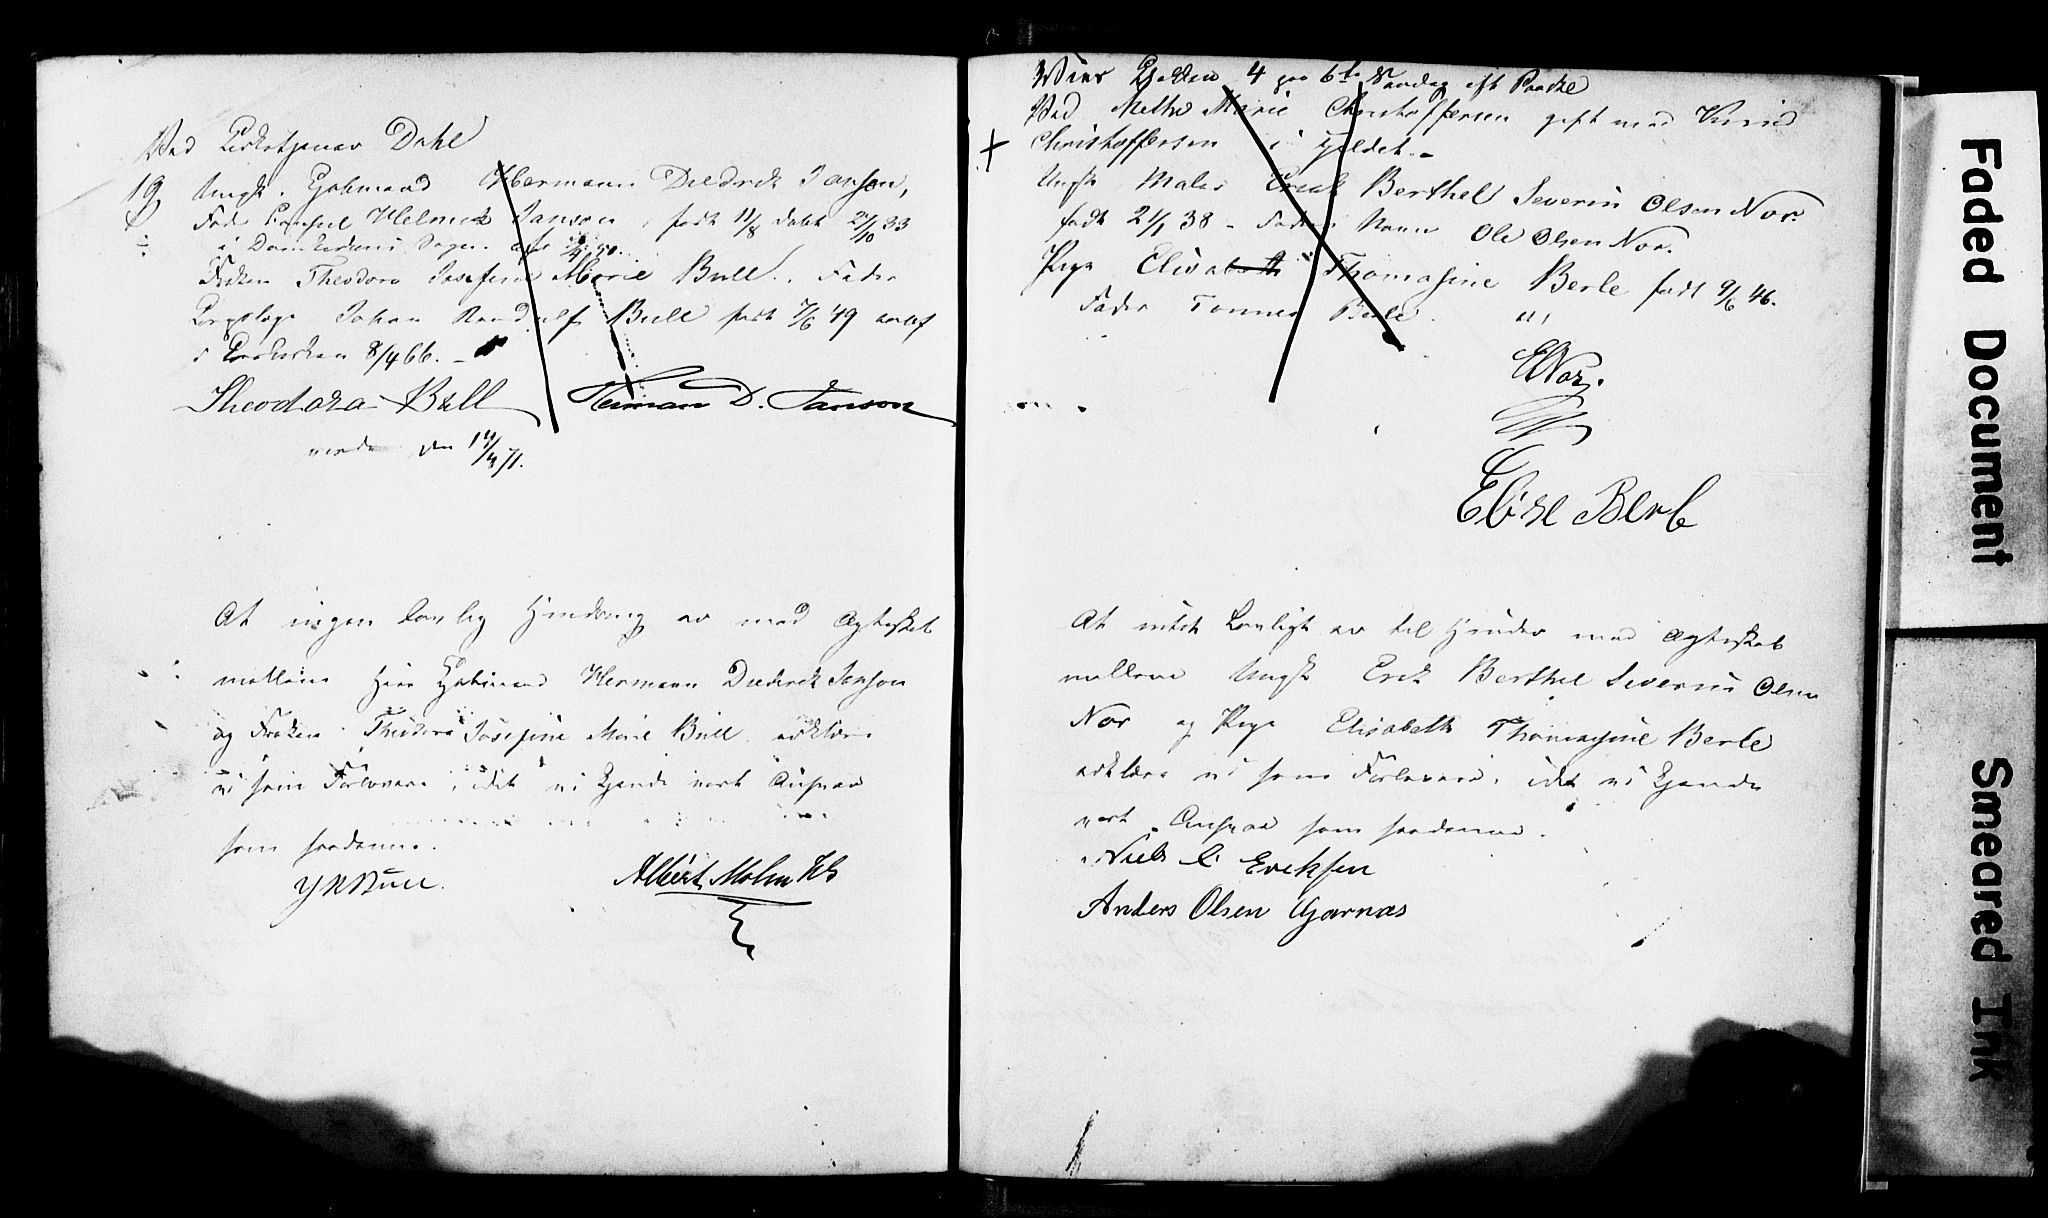 Ved Kirketjener Dahl
19 Ungk. Kjøbmand Hermann Diedrich Janson,
Fader Consul Helmich Janson, født 11/8 døbt 21/10 33
i Domkirkens Sogn.
Frøken Theodora Josefine Marie Bull. Fader
Johan Randulf Bull født 7/6 49
i Korskirken 8/4 66.
Theodora Bull Herman D. Janson
den
At ingen lovlig Hindring er mod Ægteskab
mellem Herr Kjøbmand Hermann Diederich Janson
og Frøken Theodora Josefine Marie Bull erklære
vi som Forlovere, idet vi kjende vort Ansvar
som saadanne.
J R Bull. Albert Mohn
Vies Klokken 4 paa 6te Søndag eft Paaske
Ved Methe Marie Christoffersen gift med
Christoffersen i
Ungk Maler Erick Berthel Severin Olsen Nor.
født 21/1 38 - Faders Navn Ole Olsen Nor.
Pige Elisabeth Thomasine Berle født 9/6 46.
Fader Tønnes Berle.
E Nor.
Elise Berle
At intet Lovligt er til Hinder mod Ægteskab
mellem Ungk Erick Berthel Severin Olsen
Nor og Pige Elisabeth Thomasine Berle
erklære vi som Forlovere, idet vi kjende
vort Ansvar som saadanne.
Niels C Ericksen
Anders Olsen Gjernæs
Faded Document
Smeared Ink